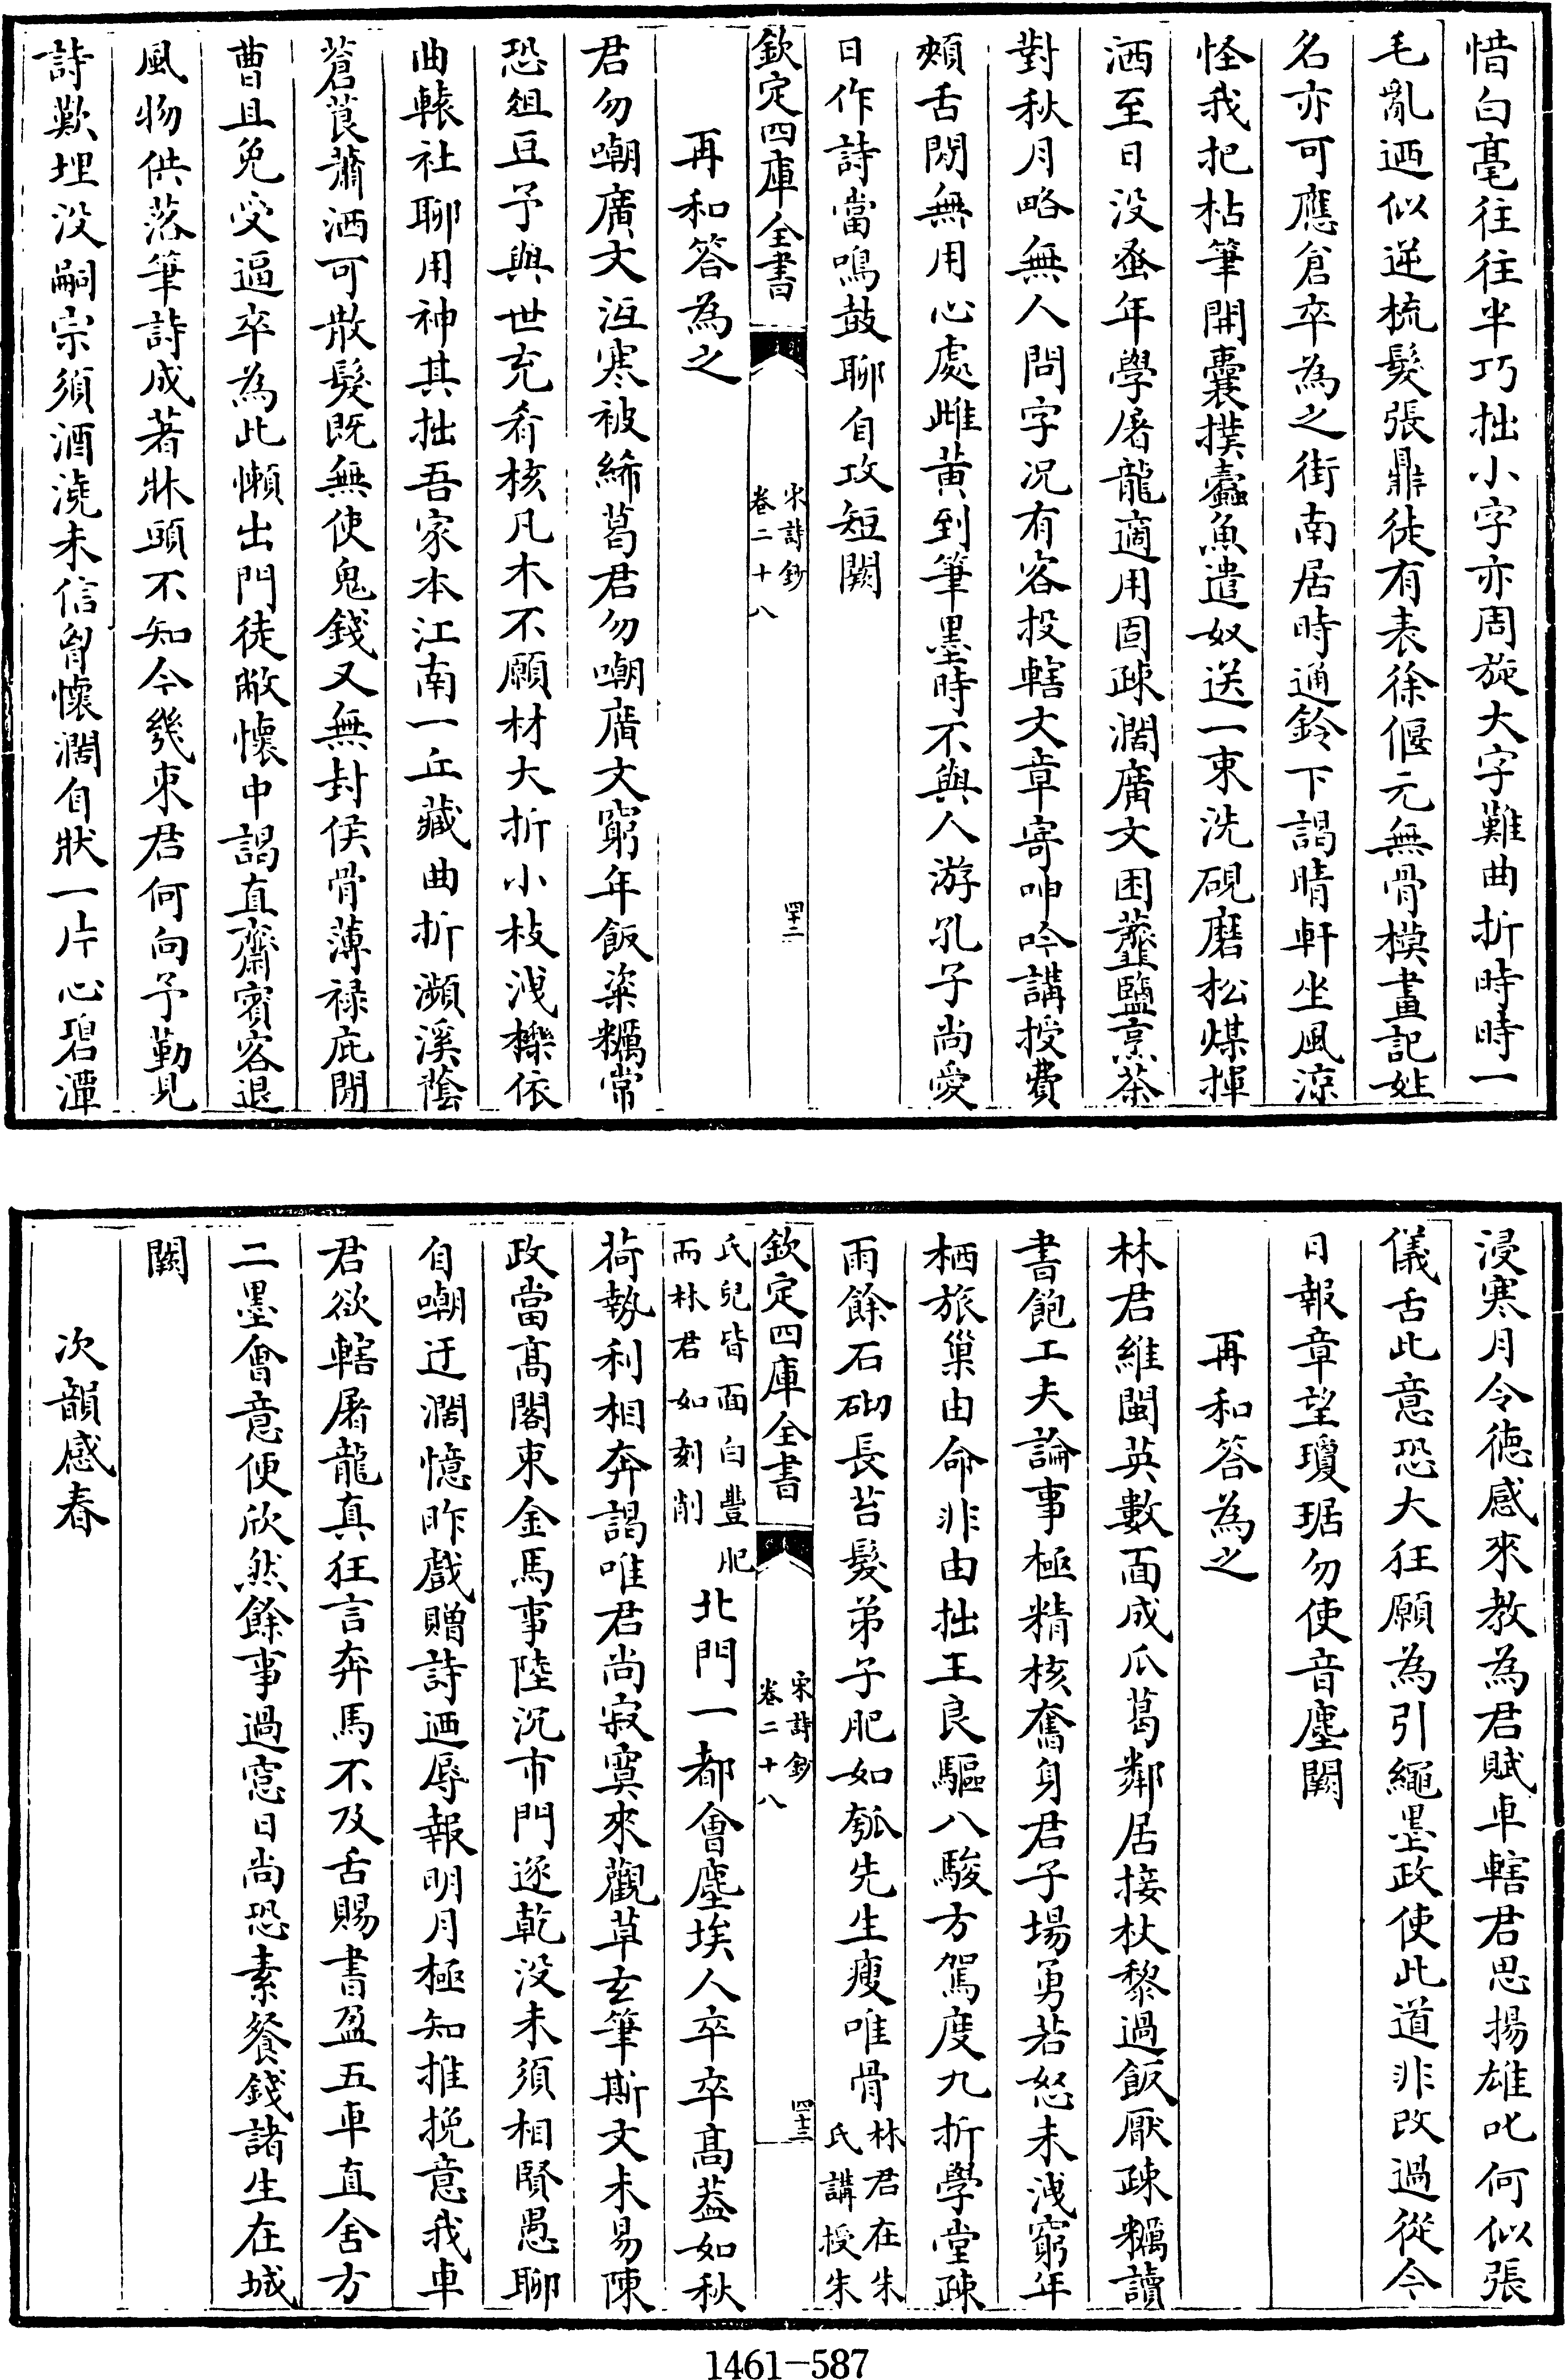 惜白毫往往半巧拙小字亦周旋大字難曲折時時一
毛亂迺似逆梳髮張鼎徒有表徐偃元無骨模畫記姓
名亦可應倉卒為之街南居時通鈴下謁晴軒坐風涼
怪我把枯筆開囊撲蠹魚遣奴送一束洗硯磨松煤揮
洒至日没蚤年學屠龍適用固疎濶廣文困虀鹽烹茶
對秋月略無人問字况有客投轄文章寄呻吟講授費
頰舌閒無用心處雌黄到筆墨時不與人游孔子尚愛
日作詩當鳴鼓聊自攻短闕
欽定四庫全書
宋詩鈔
卷二十八
四十二
再和答為之
君勿嘲廣文沍寒被絺葛君勿嘲廣文窮年飯粢糲常
恐俎豆予與世充肴核凡木不願材大折小枝洩櫟依
曲轅社聊用神其拙吾家本江南一丘藏曲折瀕溪蔭
蒼筤蕭洒可散髮既無使鬼錢又無封侯骨薄禄庇閒
曹且免受逼卒為此懶出門徒敝懷中謁直齋賓客退
風物供落筆詩成著牀頭不知今幾束君何向予勤見
詩歎埋没嗣宗須酒澆未信胷懷濶自狀一片心碧潭
浸寒月令徳感來教為君賦車轄君思揚雄叱何似張
儀舌此意恐大狂願為引繩墨政使此道非改過從今
日報章望瓊琚勿使音塵闕
再和答為之
林君維閩英數面成瓜葛鄰居接杖藜過飯厭疎糲讀
書飽工夫論事極精核奮身君子場勇若怒未洩窮年
栖旅巢由命非由拙王良驅八駿方駕度九折學堂疎
雨餘石砌長苔髮弟子肥如瓠先生瘦唯骨林君在朱
氏講授朱
欽定四庫全書
宋詩鈔
卷二十八
四十三
氏兒皆面白豐肥
而林君如刻削
北門一都會塵埃人卒卒高葢如秋
荷勢利相奔謁唯君尚寂寞來觀草玄筆斯文未易陳
政當髙閣束金馬事陸沉市門逐乾没未須相賢愚聊
自嘲迂濶憶昨戲贈詩迺辱報明月極知推挽意我車
君欲轄屠龍真狂言奔馬不及舌賜書盈五車直舍方
二墨會意便欣然餘事過窓日尚恐素餐錢諸生在城
闕
次韻感春
1461-587